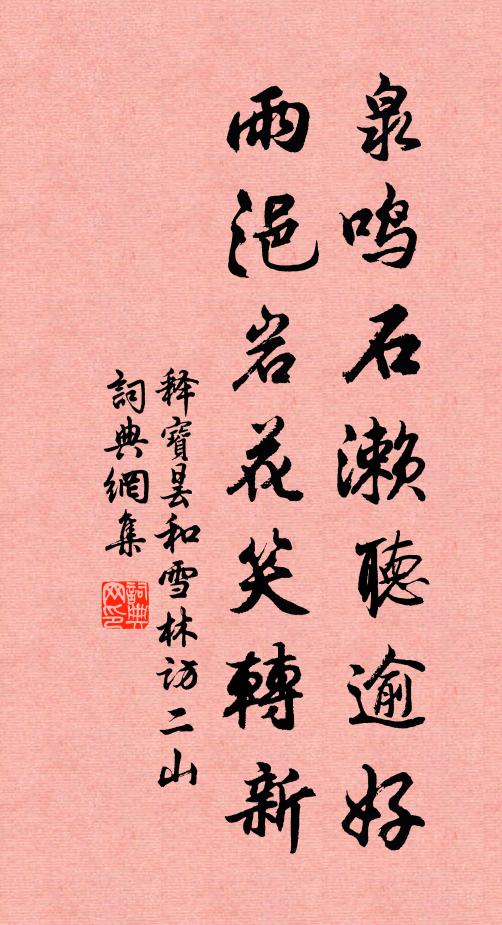 泉鸣石濑聽逾好
雨浥岩花笑轉新
释寶昙和雪林访二山
詞典網集
詞典网印